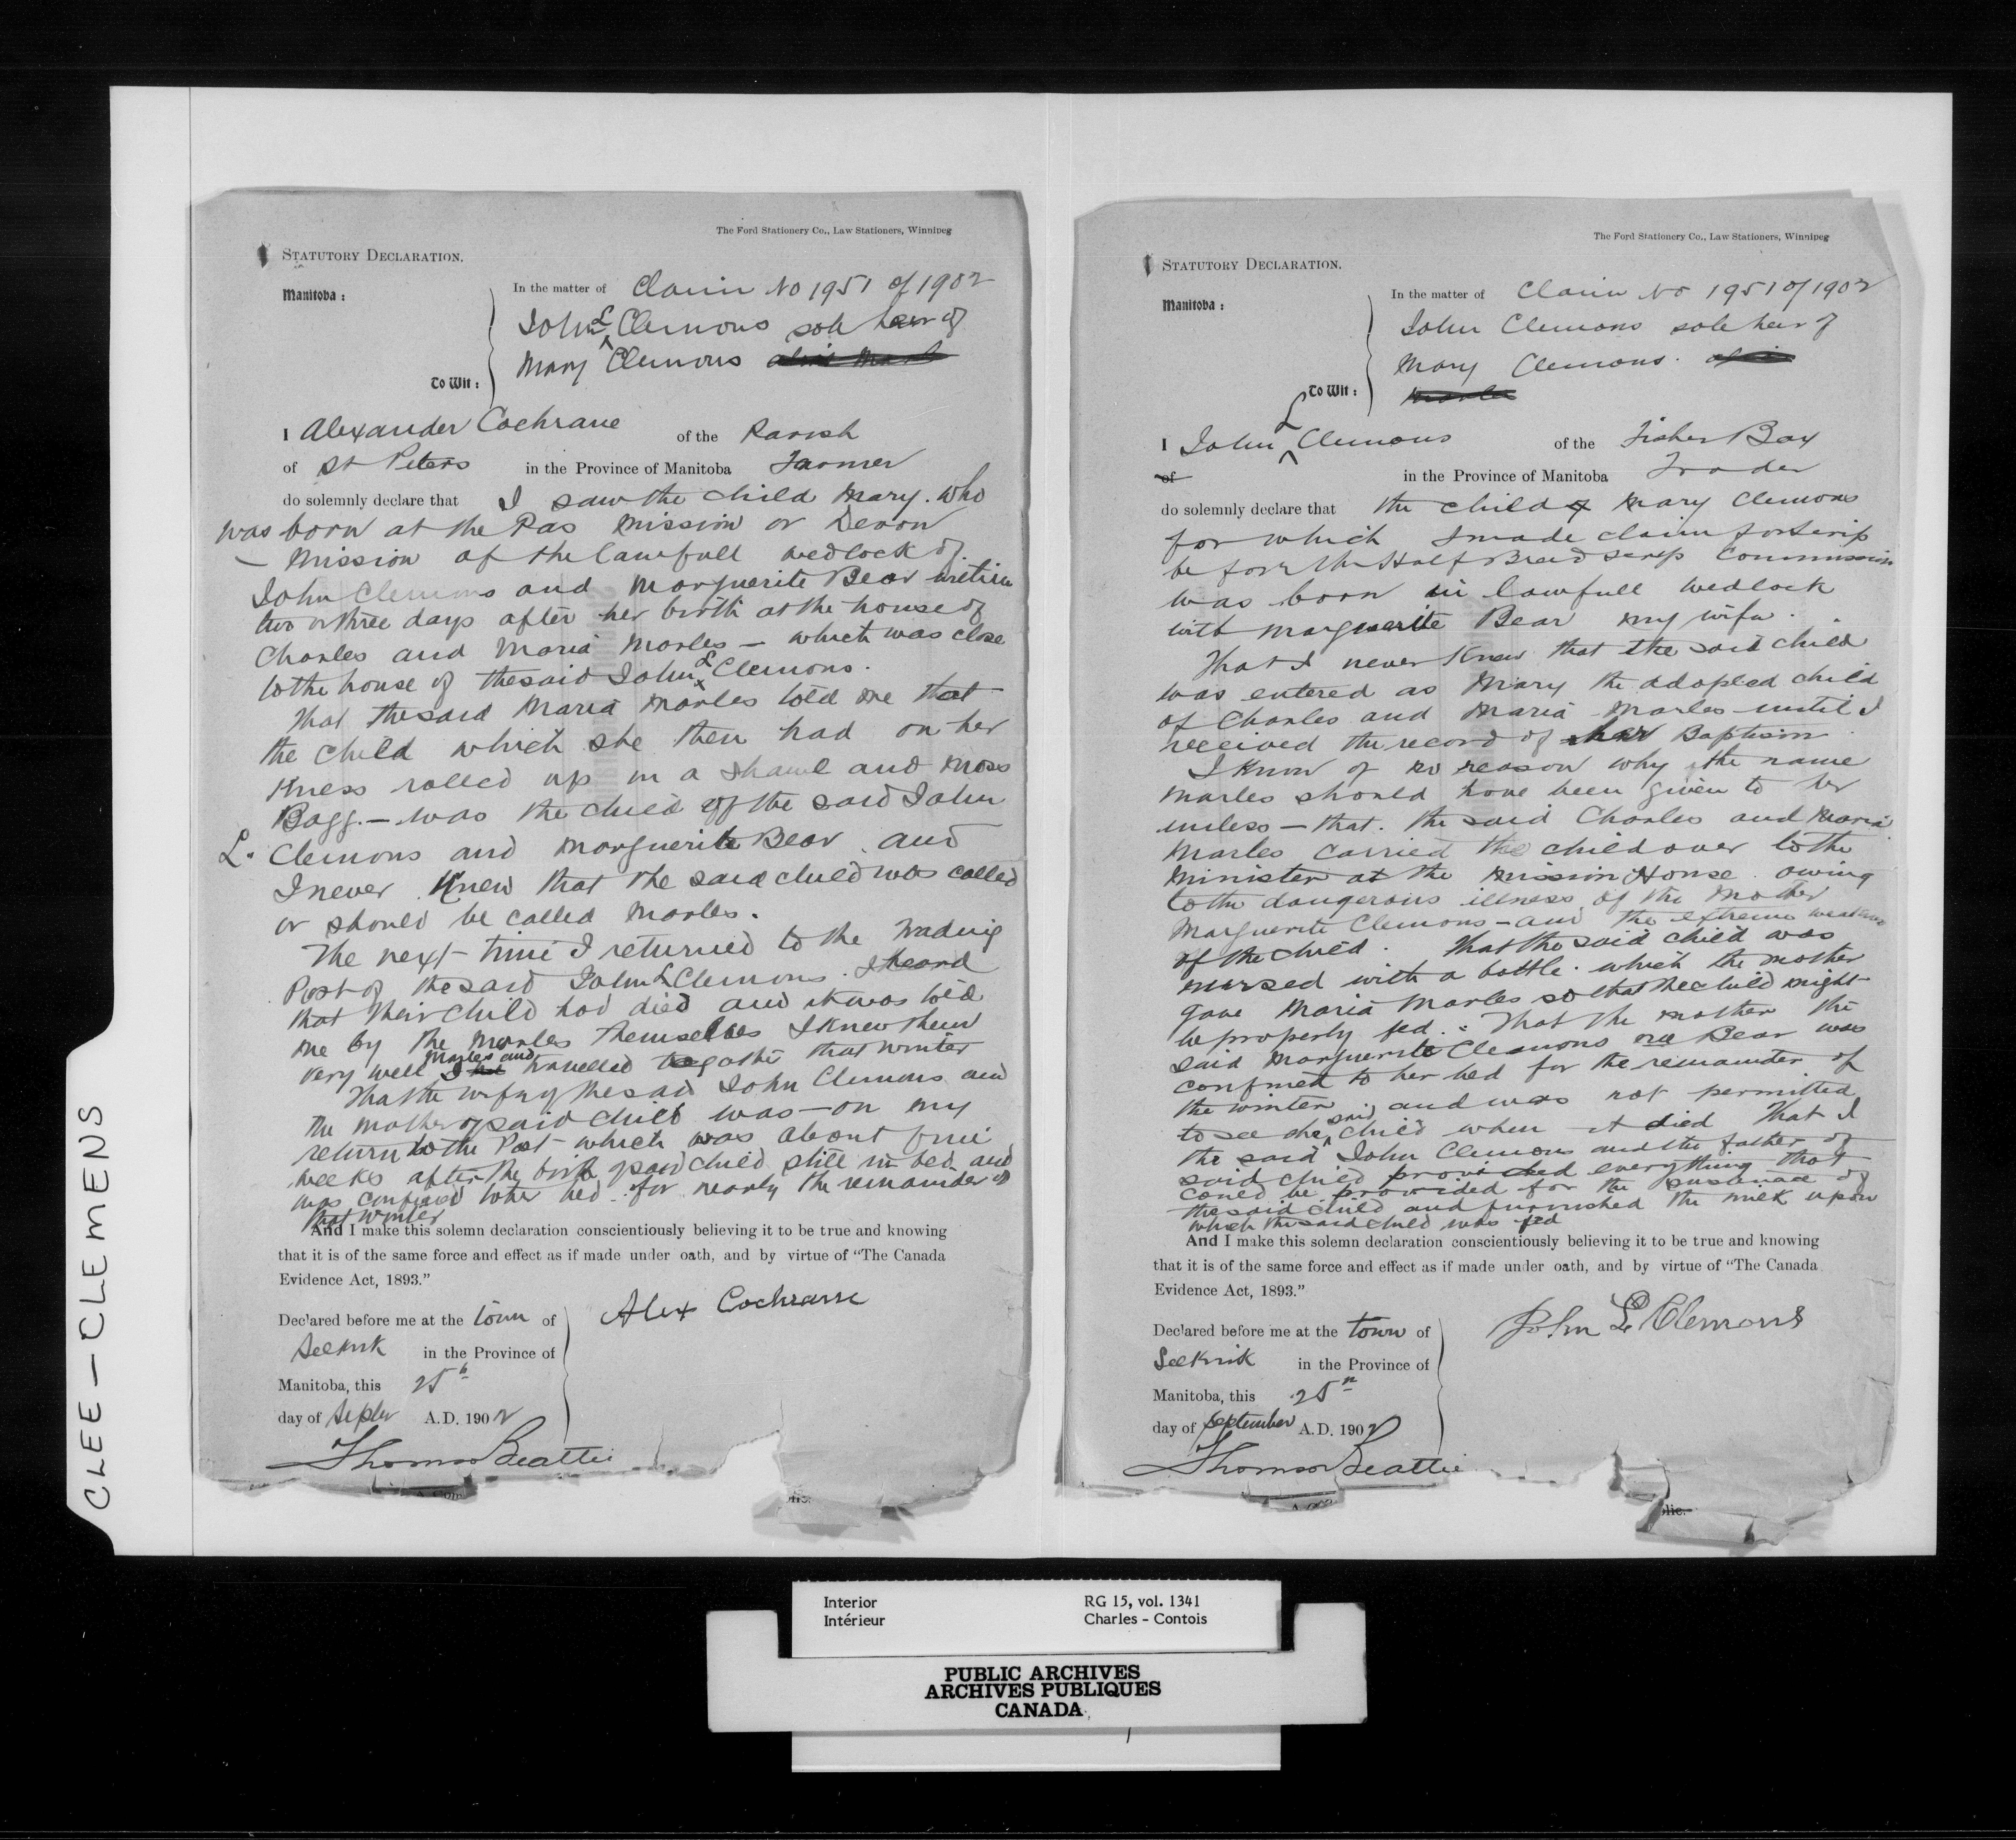 The Ford Stationery Co., Law Stationers, Winnipeg
STATUTORY DECLARATION.
In the matter of Claim No 1951 of 1902
Manitoba:
John L Clemons sole heir of
Mary Clemons alias Marle
To Wit:
I Alexander Cochrane of the Parish
of St Peters in the Province of Manitoba Farmer
do solemnly declare that I saw the child Mary. who
was born at the Pas Mission or Devon
— Mission of the lawfull wedlock of
John Clemons and Marguerite Bear within
two or three days after her birth at the house of
Charles and Maria Marles — which was close
to the house of the said John L Clemons.
That the said Maria Marles told me that
the child which she then had on her
Kness rolled up in a shawl and Moss
Bagg. — was the child of the said John
L. Clemons and Marguerite Bear. and
I never Knew that the said child was called
or should be called Marles.
The next time I returned to the Trading
Post of the said John L Clemons. I heard
that their child had died and it was told
me by the Marles themselves I knew them
very well Marles and I had travelled togather that winter
That the wife of the said John Clemons and
the mother of said child was — on my
return to the Post which was about five
weeks after the birth of said child still in bed and
was confined to her bed for nearly the remainder of
that winter
And I make this solemn declaration conscientiously believing it to be true and knowing
that it is of the same force and effect as if made under oath, and by virtue of "The Canada
Evidence Act, 1893."
Declared before me at the town of
Selkirk in the Province of
Manitoba, this 25th
day of Septer A.D. 1902
Alex Cochrane
Thomas Beattie
A Com
lic.
The Ford Stationery Co., Law Stationers, Winnipeg
STATUTORY DECLARATION.
In the matter of Claim No 1951 of 1902
Manitoba:
John Clemons sole heir of
Mary Clemons. alias
Marles
To Wit:
I John L Clemons of the Fisher Bay
of in the Province of Manitoba Trader
do solemnly declare that the child of Mary Clemons
for which I made claim for Scrip
before the Half Breed Scrip Commission
was born in lawfull wedlock
with Marguerite Bear my wife.
That I never Knew that the said child
was entered as Mary the adopted child
of Charles and Maria Marles until I
received the record of her Baptism
I Know of no reason why the name
Marles should have been given to her
unless — that. the said Charles and Maria
Marles carried the child over to the
Minister at the Mission House owing
to the dangerous illness of the Mother
Marguerite Clemons — and the extreme weakness
of the child. That the said child was
nursed with a bottle. which the mother
gave Maria Marles so that the child might
be properly fed. That the mother the
said Marguerite Clemons nee Bear was
confined to her bed for the remainder of
the winter and was not permitted
to see the said child when it died That I
the said John Clemons and the father of
said child provided everything that
could be provided for the sustenance of
the said child and furnished the milk upon
which the said child was fed
And I make this solemn declaration conscientiously believing it to be true and knowing
that it is of the same force and effect as if made under oath, and by virtue of "The Canada
Evidence Act, 1893."
Declared before me at the town of
Selkirk in the Province of
Manitoba, this 25th
day of September A.D. 1902
John L Clemons
Thomas Beattie
A Com
lic.
CLEE-CLEMENS
Interior
Intérieur
RG 15, vol. 1341
Charles - Contois
PUBLIC ARCHIVES
ARCHIVES PUBLIQUES
CANADA